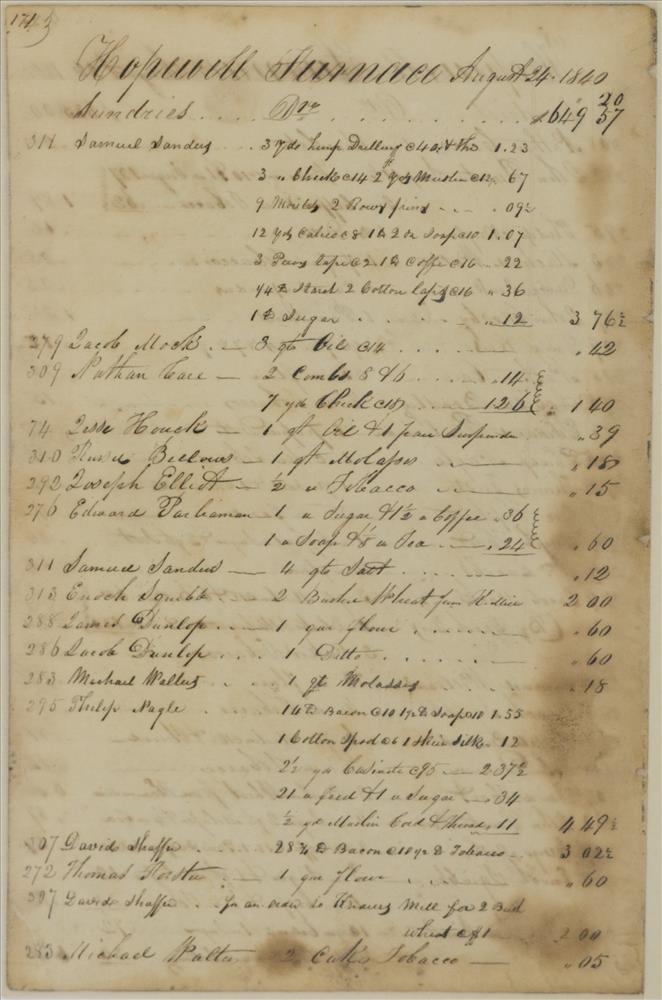 Hopewell Furnace August 24 1840
Sundries . . . . Drs . . . . . . . . . . $649 57
20
311 Samuel Sanders . . 3 yds Drilling @ 40 & 1.23
3 " Check @ 14 2 yds Muslin @ 67
9 2 Rows pins - - . . 09½
12 yds Calico @ 8 1 ℔ Soap @ 10 1.07
3 tape @ 2. 1 ℔ Coffe @ 16 . 22
1/4 ℔ Starch 2 Cotton Caps @ 16 " 36
1 ℔ Sugar . . . . . . " 12 3 76½
279 Jacob Mock . — 3 qts Oil @ 14 . . . . — " 42
309 Nathan Care — 2 Combs 8 & 6 . . . . . 14
7 yds Check @ 18 . . . . 1 26 . 1 40
74 Jesse Houck — 1 qt Oil & 1 pair Suspenders " 39
310 Bellows — 1 qt Molasses — " 18
292 Joseph Elliot — ½ " Tobacco — " 15
276 Edward Parliaman 1 " Sugar & 1½ " Coffee . 36
1 " Soap & ⅛ " Tea . — . 24 " 60
311 Samuel Sanders — 4 qts Salt . . . . . . " 12
313 Enoch Squibb — 2 Bushel Wheat from 2 00
288 James Dunlop . — 1 qur flour . . . . — " 60
286 Jacob Dunlop . . . 1 Ditto . . . . . — " 60
283 Michael Walters . . . 1 qt Molasses . . . . " 18
295 Philip Nagle . . . 14 ℔ Bacon @ 10 ℔ Soap @ 10 1.55
1 Cotton Spool @ 6 1 Skein Silk . 12
2½ yds Casinete @ 95 — 2 37½
21 " feed & 1 " Sugar — . 34
½ yd Muslin Cord & thread . 11 4 49½
307 David Shaffer . . 28¾ ℔ Bacon @ 10 Tobacco . 3 02½
272 Thomas — 1 qur flour . . . . . " 60
307 David Shaffer . . for an order to Mill for 2 Bush
wheat @ $1 — 2 00
283 Michael Walter 2 Cakes Tobacco — " 05